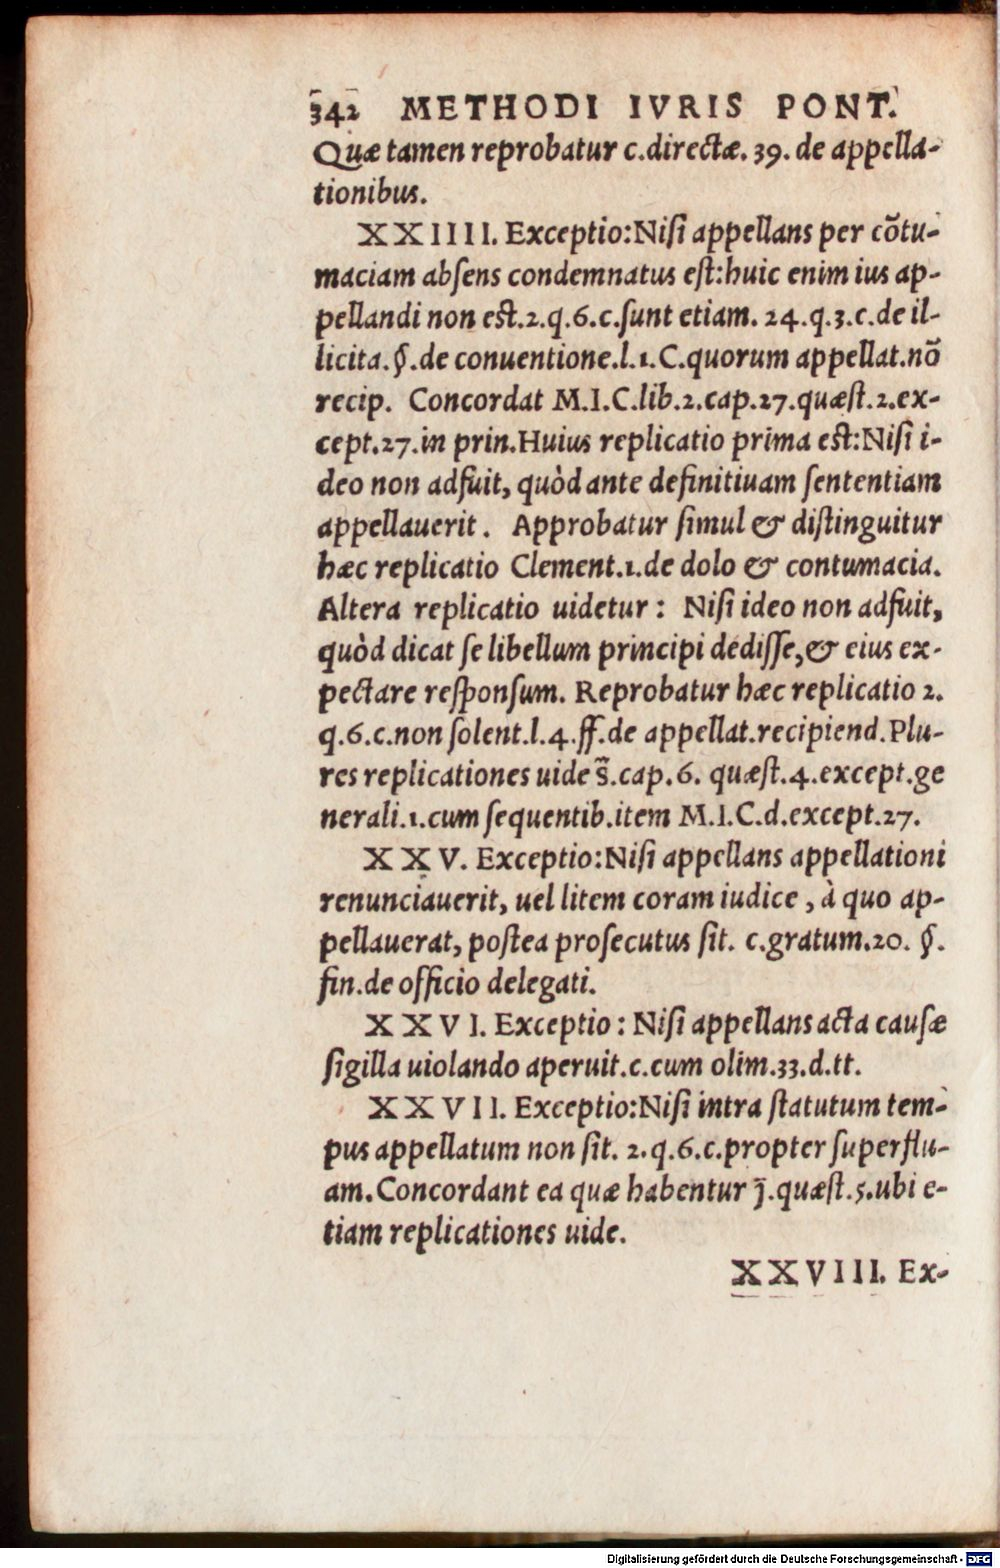 342 METHODI IVRIS PONT.
Quæ tamen reprobatur c.directæ. 39. de appella-
tionibus.
XXIIII. Exceptio:Niſi appellans per cõtu-
maciam abſens condemnatus eſt:huic enim ius ap-
pellandi non est.2.q.6.c.ſunt etiam. 24.q.3.c.de il-
licita.§.de conuentione.l.1.C.quorum appellat.nõ
recip. Concordat M.I.C.lib.2.cap.27.quæſt.2.ex-
cept.27.in prin.Huius replicatio prima est:Niſi i-
deo non adfuit, quòd ante definitiuam ſententiam
appellauerit. Approbatur ſimul & diſtinguitur
hæc replicatio Clement.1.de dolo & contumacia.
Altera replicatio uidetur: Niſi ideo non adfuit,
quòd dicat ſe libellum principi dediſſe,& eius ex-
pectare reſponſum. Reprobatur hæc replicatio 2.
q.6.c.non ſolent.l.4.ff.de appellat.recipiend.Plu-
res replicationes uide s̃.cap.6. quæſt.4.except.ge
nerali.1.cum ſequentib.item M.I.C.d.except.27.
XXV. Exceptio:Niſi appellans appellationi
renunciauerit, uel litem coram iudice, à quo ap-
pellauerat, poſtea proſecutus ſit. c.gratum.20. §.
fin.de officio delegati.
XXVI. Exceptio: Niſi appellans acta cauſæ
ſigilla uiolando aperuit.c.cum olim.33.d.tt.
XXVII. Exceptio:Niſi intra ſtatutum tem-
pus appellatum non ſit. 2.q.6.c.propter ſuperflu-
am.Concordant ea quæ habentur j̃.quæſt.5.ubi e-
tiam replicationes uide.
XXVIII. Ex-
Digitalisierung gefördert durch die Deutsche Forschungsgemeinschaft - DFG